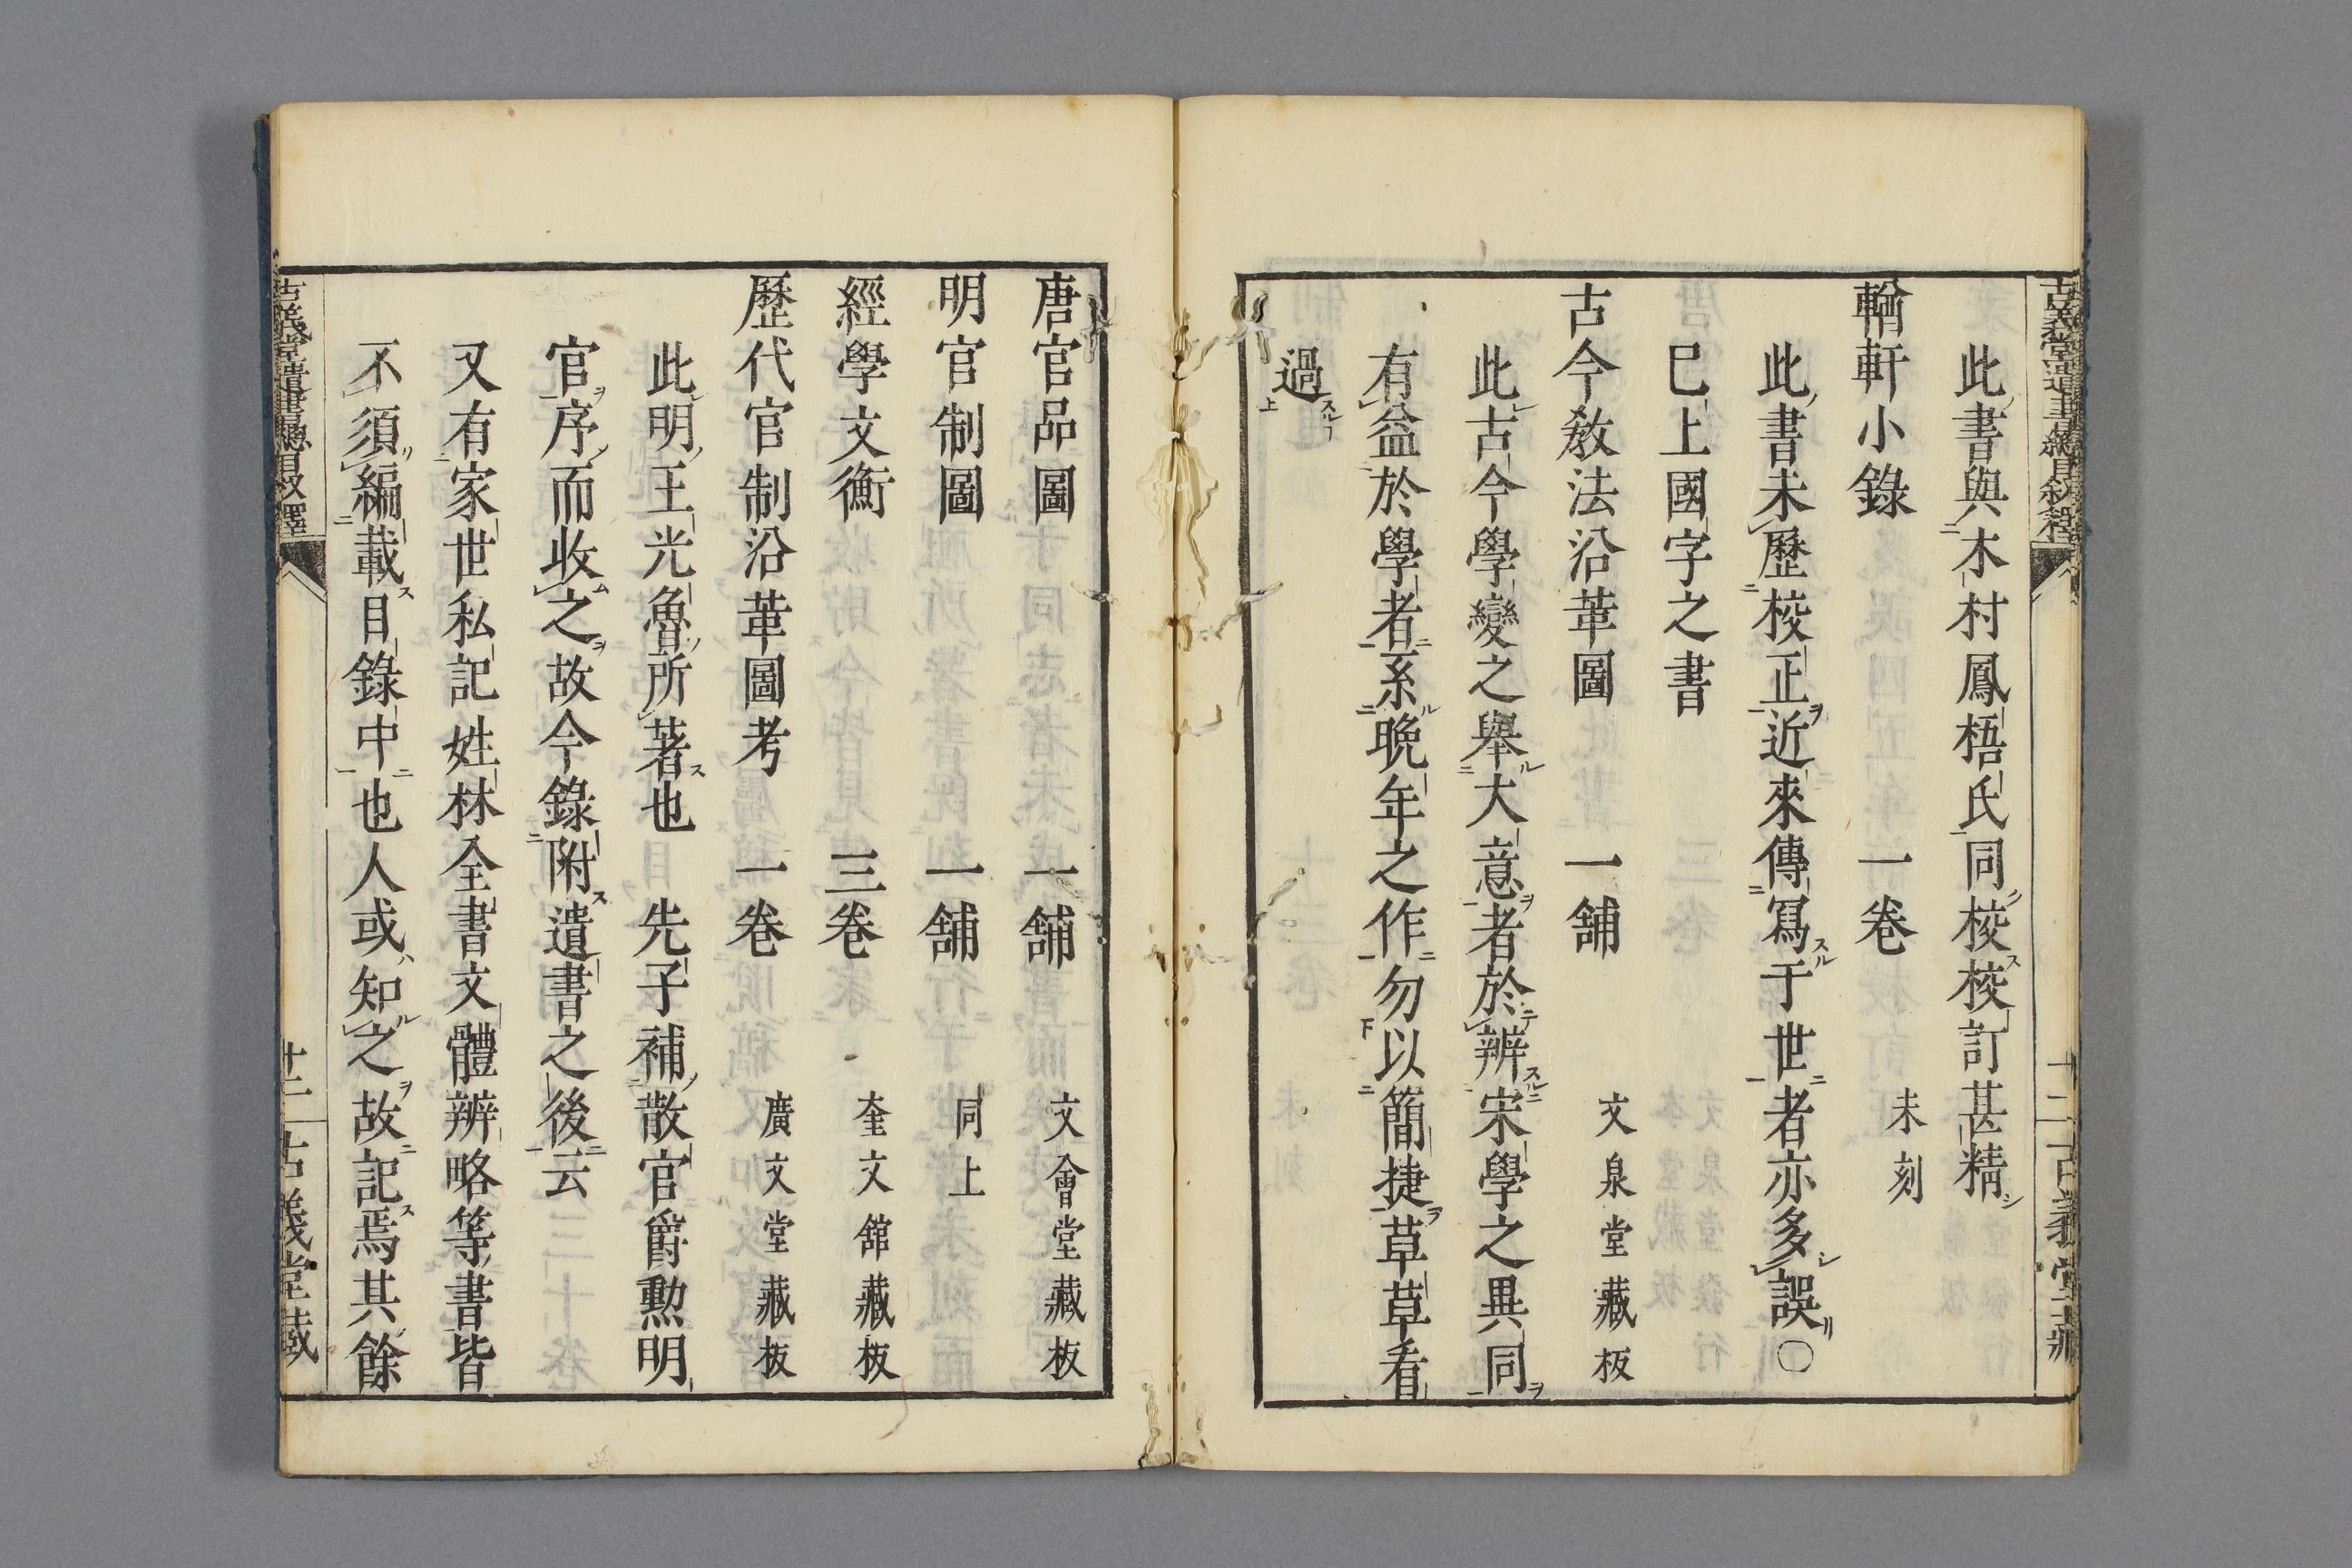 古義堂遺書總目叙釋 十二 古義堂藏
此書與木村鳳梧氏同校校訂甚精
輶軒小錄 一卷 未刻
此書未歷校正近來傳寫于世者亦多誤〇
巳上國字之書
古今敎法沿革圖 一舖 文泉堂藏板
此古今學變之舉大意者於辨宋學之異同
有益於學者系晩年之作勿以簡捷草草看
過
唐官品圖 一舖 文會堂藏板
明官制圖 一舖 同上
經學文衡 三卷 奎文舘藏板
歷代官制沿革圖考 一卷 廣文堂藏板
此明王光魯所著也 先子補散官爵勲明
官序而收之故今錄附遺書之後云
又有家世私記姓林全書文體辨略等書皆
不須編載目錄中也人或知之故記焉其餘
古義堂遺書總目叙釋 古義堂藏